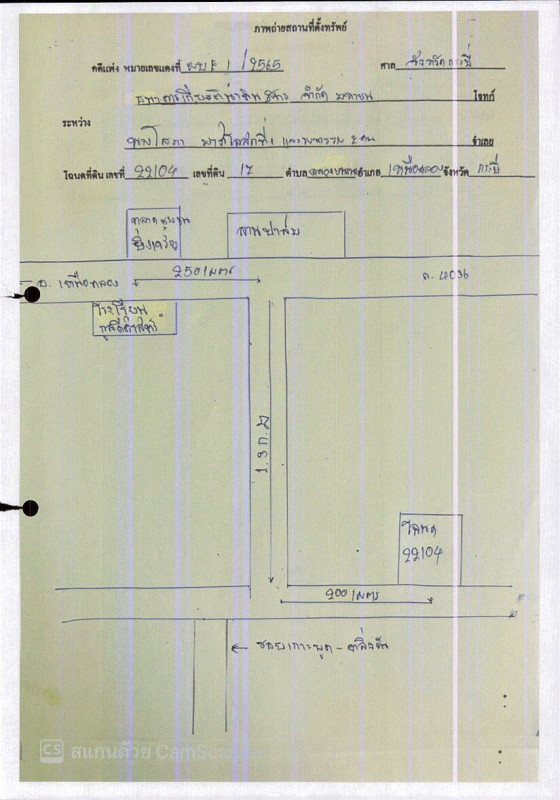 ภาพถ่ายสถานที่ตั้งทรัพย์
คดีแพ่ง หมายเลขแดงที่ ผบE 1 /2565 ศาล จังหวัดกระบี่
ธนาคารเกียรตินาคินภัทร จำกัด มหาชน โจทก์
ระหว่าง
จำเลย
โฉนดที่ดิน เลขที่ 22104 เลขที่ดิน 17 ตำบล อำเภอ เหนือคลอง จังหวัด กระบี่
ตลาดชุมชน
ลานปาล์ม
250 เมตร
อ. เหนือคลอง
ถ. 4036
โรงเรียน
1.3 ก.ม
โฉนด
22104
200 เมตร
← ซอยเกาะพูด - ตลิ่งชัน
CS สแกนด้วย CamScanner